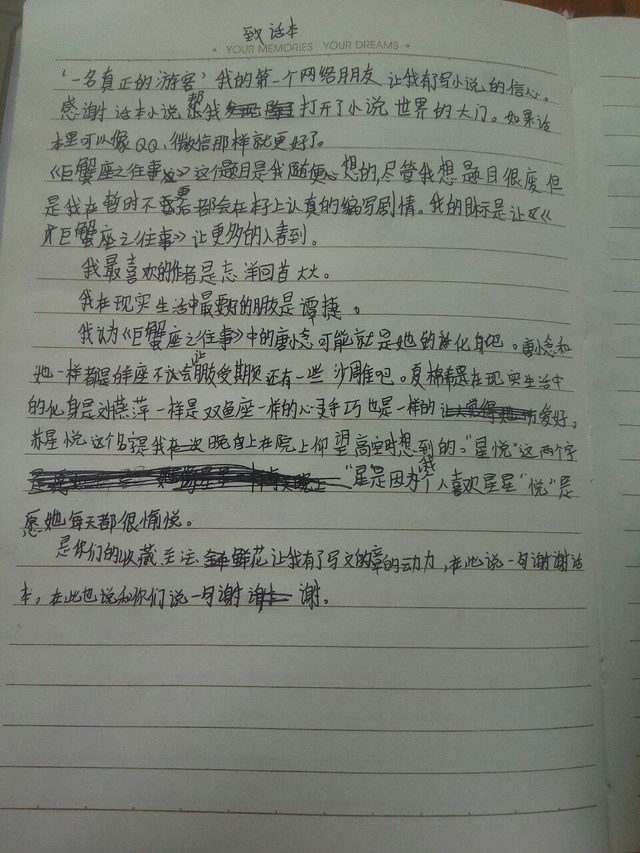 致话本
YOUR MEMORIES YOUR DREAMS
‘一名真正的游客’我的第一个网络朋友 让我有写小说的信心。
感谢话本小说 帮我打开了小说世界的大门。如果话
本里可以像QQ、微信那样就更好了。
《巨蟹座之往事》这个题目是我随便想的,尽管我想题目很废 但
是我在暂时不更后都会在本子上认真的编写剧情。我的目标是让《
巨蟹座之往事》让更多的人看到。
我最喜欢的作者是忘洋回首大大。
我在现实生活中最要好的朋友是谭捷。
我认为《巨蟹座之往事》中的唐念可能就是她的化身吧。唐念和
她一样都是羊座不让会朋友受期 还有一些沙雕吧。夏棉希是在现实生活中
的化身是刘蕊萍一样是双鱼座一样的心灵手巧也是一样的爱好,
苏星悦这个名字是我在一次晚自上在院上仰望高空时想到的。“星悦”这两个字
“星”是因为我个人喜欢星星“悦”是
愿她每天都很愉悦。
是你们的收藏 关注 鲜花让我有了写文的章的动力,在此说一句谢谢话
本,在此也说和你们说一句谢谢。